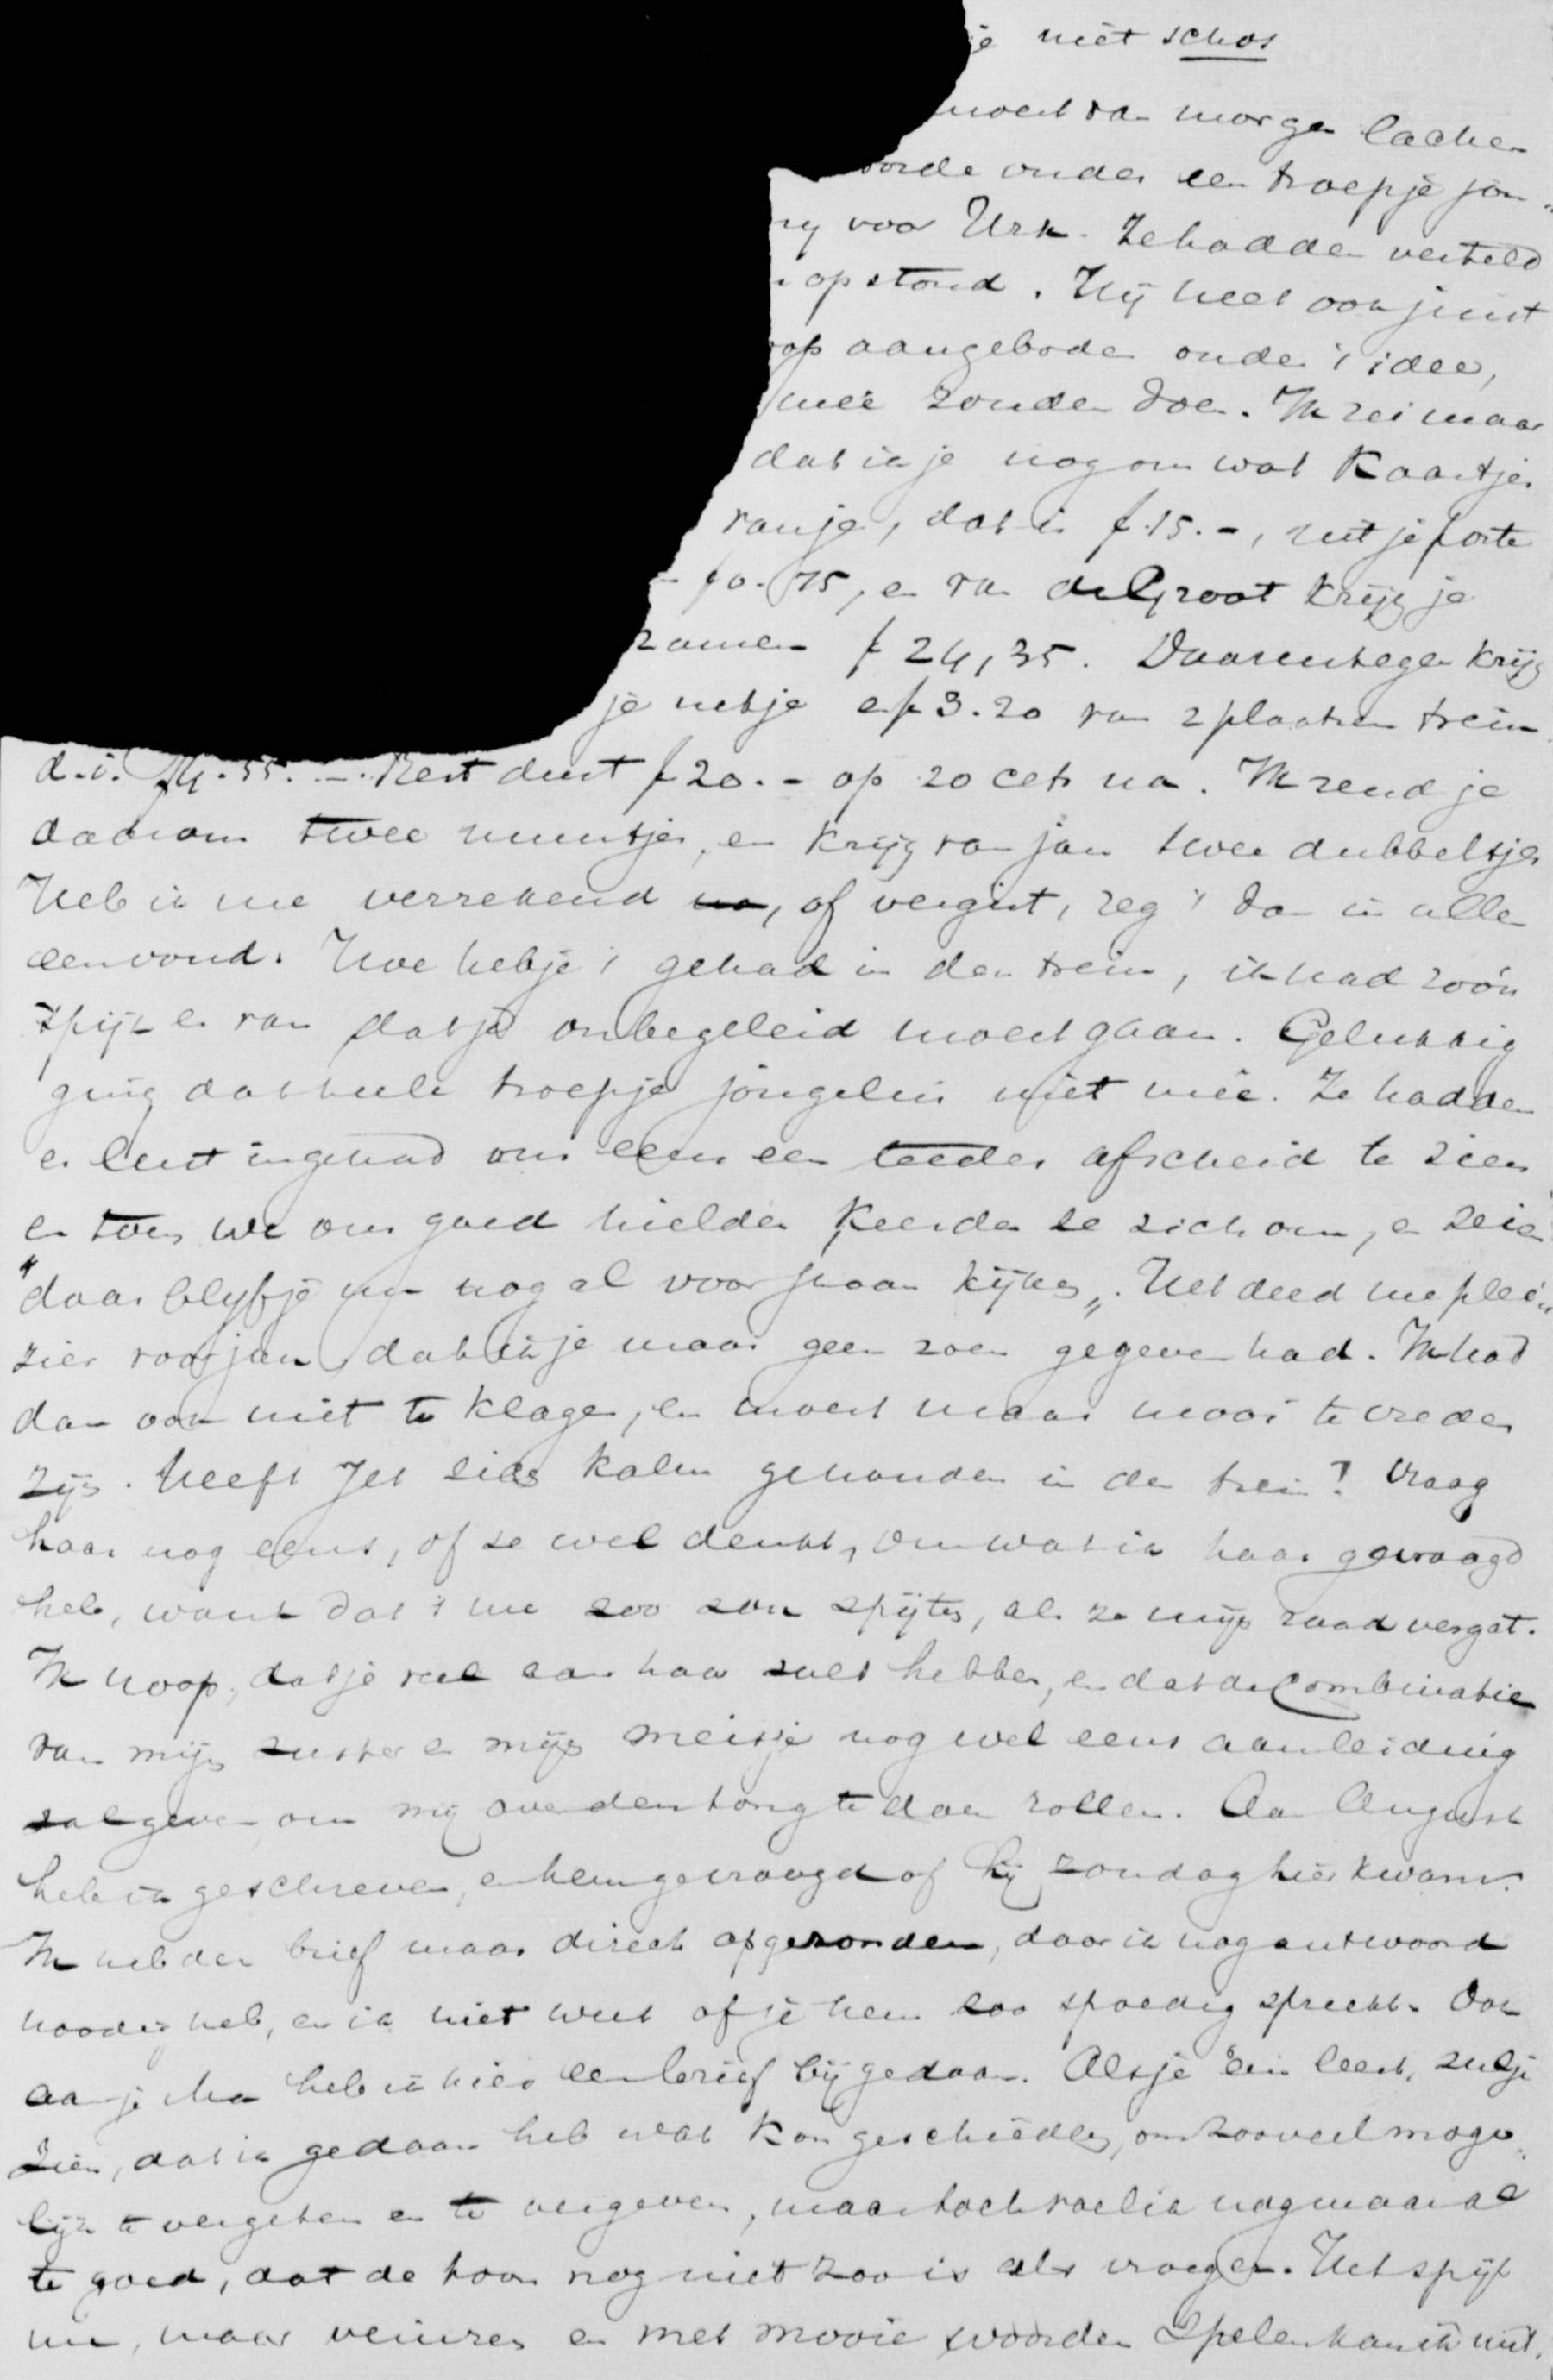 je niet schos
moest van morgen lachen
oorde onder een troepje jon-
ng voor Urk. Ze hadden verteld
n opstond. Hij heet ook juist
op aangeboden onder 't idee,
mee zouden doen. Ik zei maar
dat ik je nog om wat kaartjes
van je, dat is f 15.-, uit je porte
- f 0.75, en van de Groot krijg je
zamen f 24,35. Daarentegen krijg
je netje en f 3.20 van 2 plaatsen trein
d.i. f 4.55. -. Rest dust f 20.- op 20 cets na. Ik zend je
daarom twee muntjes, en krijg van jou twee dubbeltjes
Heb ik me verrekend, of vergist, zeg 't dan in alle
eenvoud. Hoe heb je 't gehad in den trein, ik had zoo'n
spijt er van dat je onbegeleid moest gaan. Gelukkig
ging dat heele troepje jongelui niet mee. Ze hadden
er lust in gehad ons eens een teeder afscheid te zien
en toen we ons goed hielden keerden ze zich om, en zeien
"daar blijf je nu nog al voor staan kijken". Het deed me plei-
zier voor jou, dat ik je maar geen zoen gegeven had. Ik had
dan ook niet te klagen, en moest maar mooi tevreden
zijn. Heeft Jet zich kalm gehouden in den trein? Vraag
haar nog eens, of ze wel denkt, om wat ik haar gevraagd
heb, want dat 't me zoo zou spijten, als ze mijn raad vergat.
Ik hoop, dat je veel aan haar zult hebben, en dat de combinatie
van mijn zuster en mijn meisje nog wel eens aanleiding
zal geven om mij over den tong te doen rollen. Aan August
heb ik geschreven, en hem gevraagd of hij zondag hier kwam.
Ik heb den brief maar direct afgezonden, daar ik nog antwoord
noodig heb, en ik niet weet of je hem zoo spoedig spreekt. Ook
aan je Ma heb ik hier een brief bij gedaan. Als je 'em leest, zul je
zien, dat ik gedaan heb wat kon geschieden, om zooveel moge-
lijk te vergeten en te vergeven, maar toch voel ik nog maar al
te goed, dat de toon nog niet zoo is als vroeger. Het spijt
me, maar veinzen en met mooie woorden spelen kan ik niet.